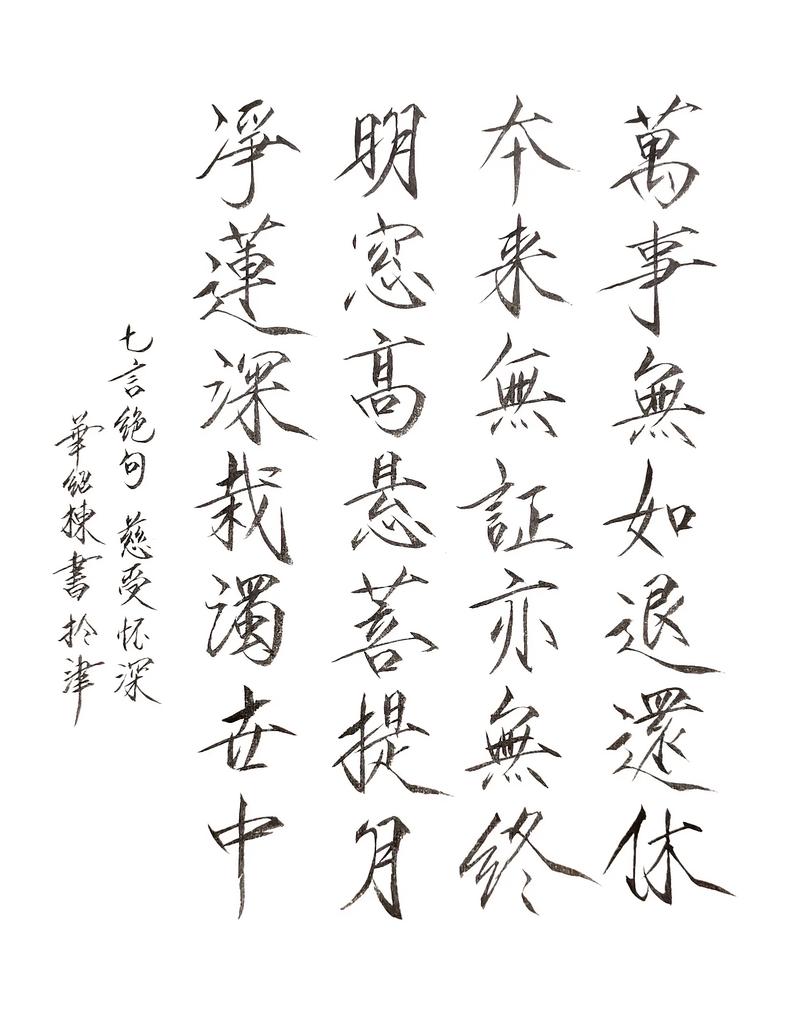 萬事無如退還休
本来無証亦無終
明窓高悬菩提月
淨蓮深栽濁世中
七言绝句 慈受怀深
華紹棟書於津